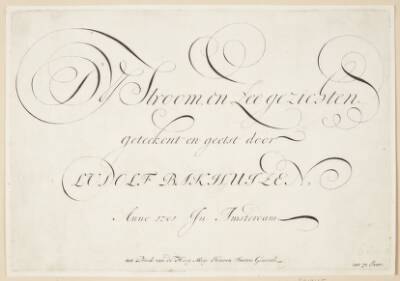 D'Y Stroom, en Zee gezichten.
Geteekent en geetst door
LUDOLF BAKHUIZEN.
Anno 1701 In Amsterdam
van de Hoog Moge Heeren Staten Generaal
oud 71 Jaar.